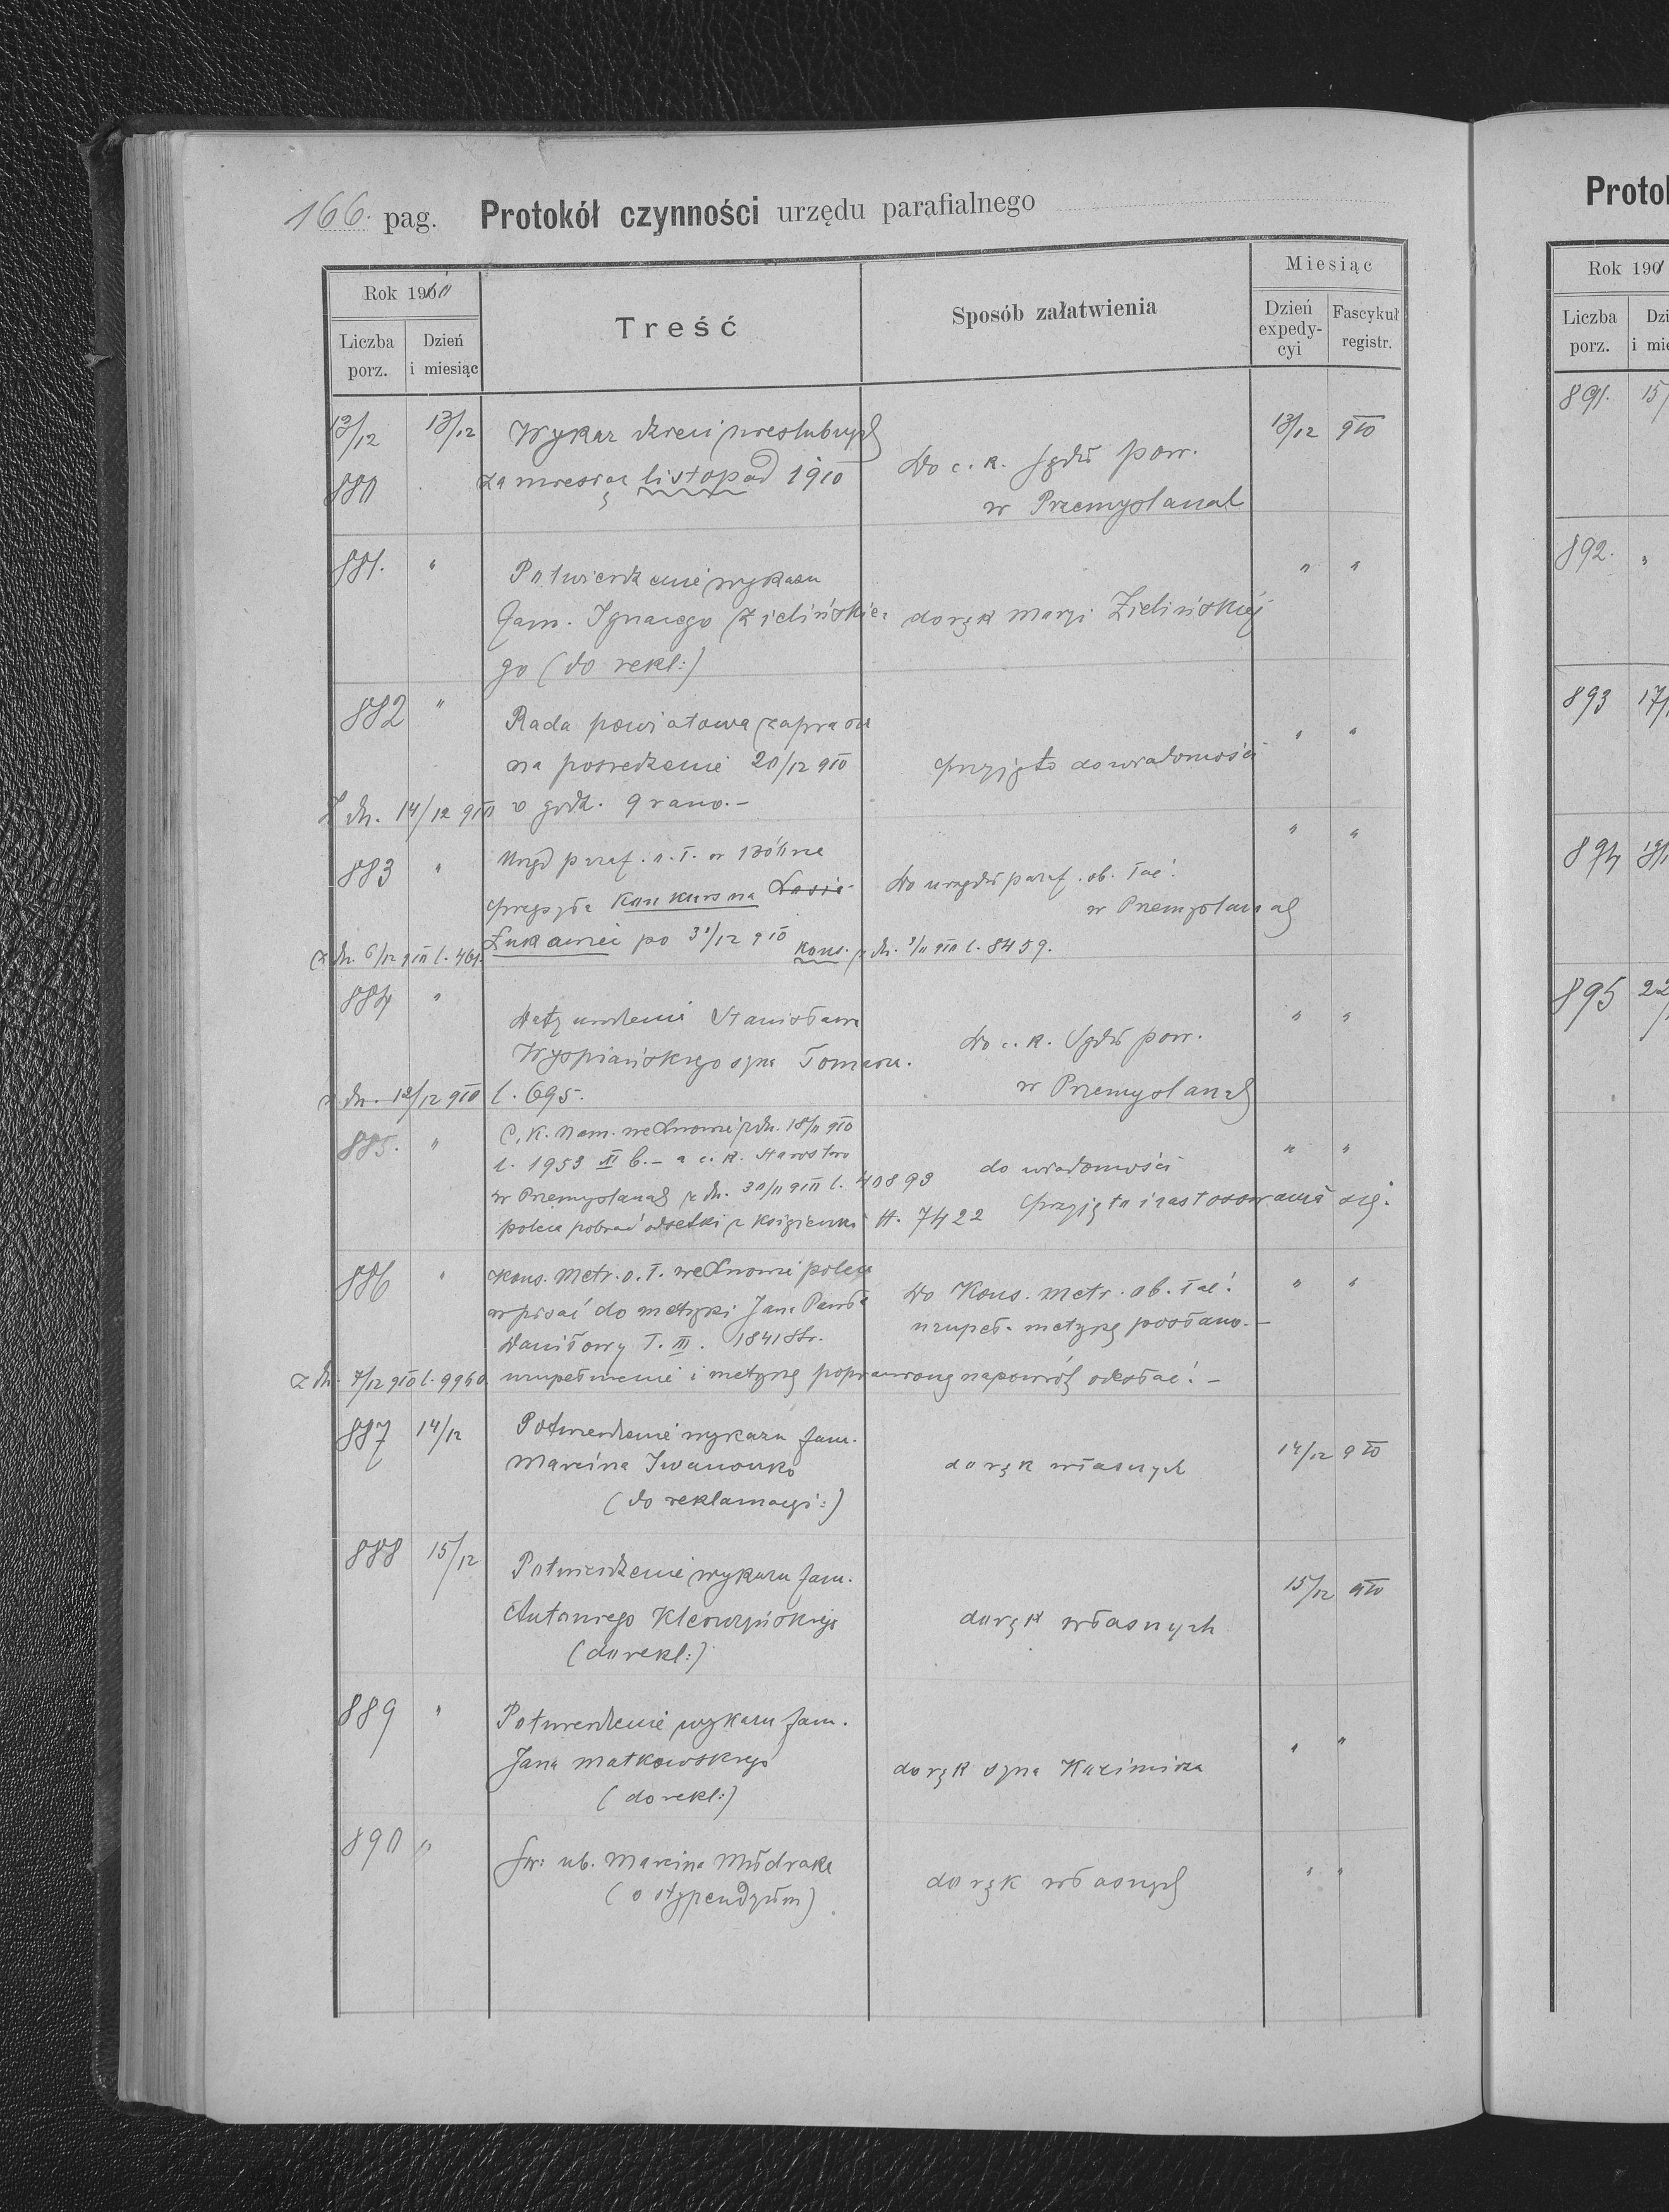 166. pag. Protokół czynności urzędu parafialnego
Rok 1910
Treść
Sposób załatwienia
Miesiąc
Liczba porz.
Dzień i miesiąc
Dzień expedycyi
Fascykuł registr.
13/12 13/12 Wykaz dzieci nieslubnych 13/12 910
880 za miesiąc listopad 1910 Do c. k. Sądu pow.
w Przemyslanach
881. " Potwierdzenie wykazu " "
fam. Ignacego Zielińskie- do rąk Maryi Zielińskiej
go (do rekl:)
882 " Rada powiatowa zaprasza " "
na posiedzenie 20/12 910 przyjęto do wiadomości
Z dn. 14/12 910 o godz. 9 rano. -
883 " Urząd paraf. o. ł. w " "
przesyła Konkurs na Do urzędu paraf. ob. łać.
w Przemyslanach
z dn. 6/12 910 l. 461. po 31/12 910 Kons. z dn. l. 8459.
884 " Datę urodzenia Stanisława " "
Wyspiańskiego syna Tomasza. Do c. k. Sądu pow.
z dn. 12/12 910 l. 695. w Przemyslanach
885. " C. K. Nam. we Lwowie z dn. 18/11 910 " "
l. 1953 b. - a c. k. Starostwo do wiadomości
w Przemyslanach z dn. 30/11 910 l. 40893 przyjęto i zastosowano się.
poleca pobrać odsetki z książeczki 7422
886 " Kons. Metr. o. ł. we Lwowie poleca " "
wpisać do metryki Jana Pawła Do Kons. metr. ob. łać.
Daniłowy T. III. 1841 Str. uzupeł. metrykę posłano. -
z dn. 7/12 910 l. 9960 uzupełnienie i metrykę poprawioną napowrót odesłać. -
887 14/12 Potwierdzenie wykazu fam. 14/12 910
Marcina Iwanouko do rąk własnych
(do reklamacyi:)
888 15/12 Potwierdzenie wykazu fam. 15/12 910
Antoniego do rąk własnych
(do rekl:)
889 " Potwierdzenie wykazu fam. " "
Jana Matkowskiego do rąk syna Kazimirza
(do rekl:)
890 " św: ub. Marcina Mudraka " "
(o stypendyum) do rąk własnych
Protok
Rok 190
Liczba porz.
Dzi
i mie
891. 15/
892. "
893 17/
894 19/
895 22/